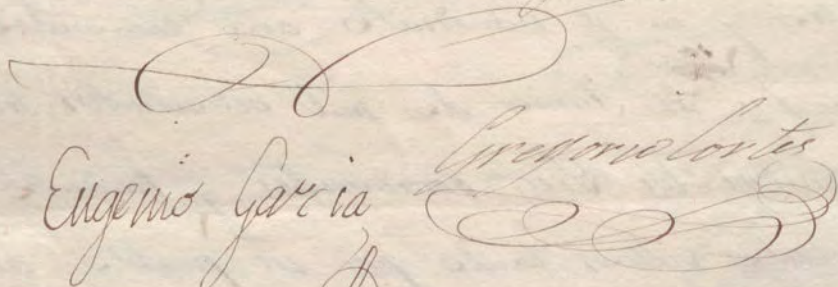 Eugenio Garcia
Gregorio Cortes